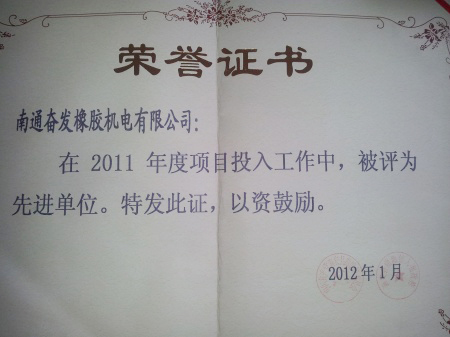 荣誉证书
南通奋发橡胶机电有限公司:
在 2011 年度项目投入工作中，被评为
先进单位。特发此证，以资鼓励。
2012年1月